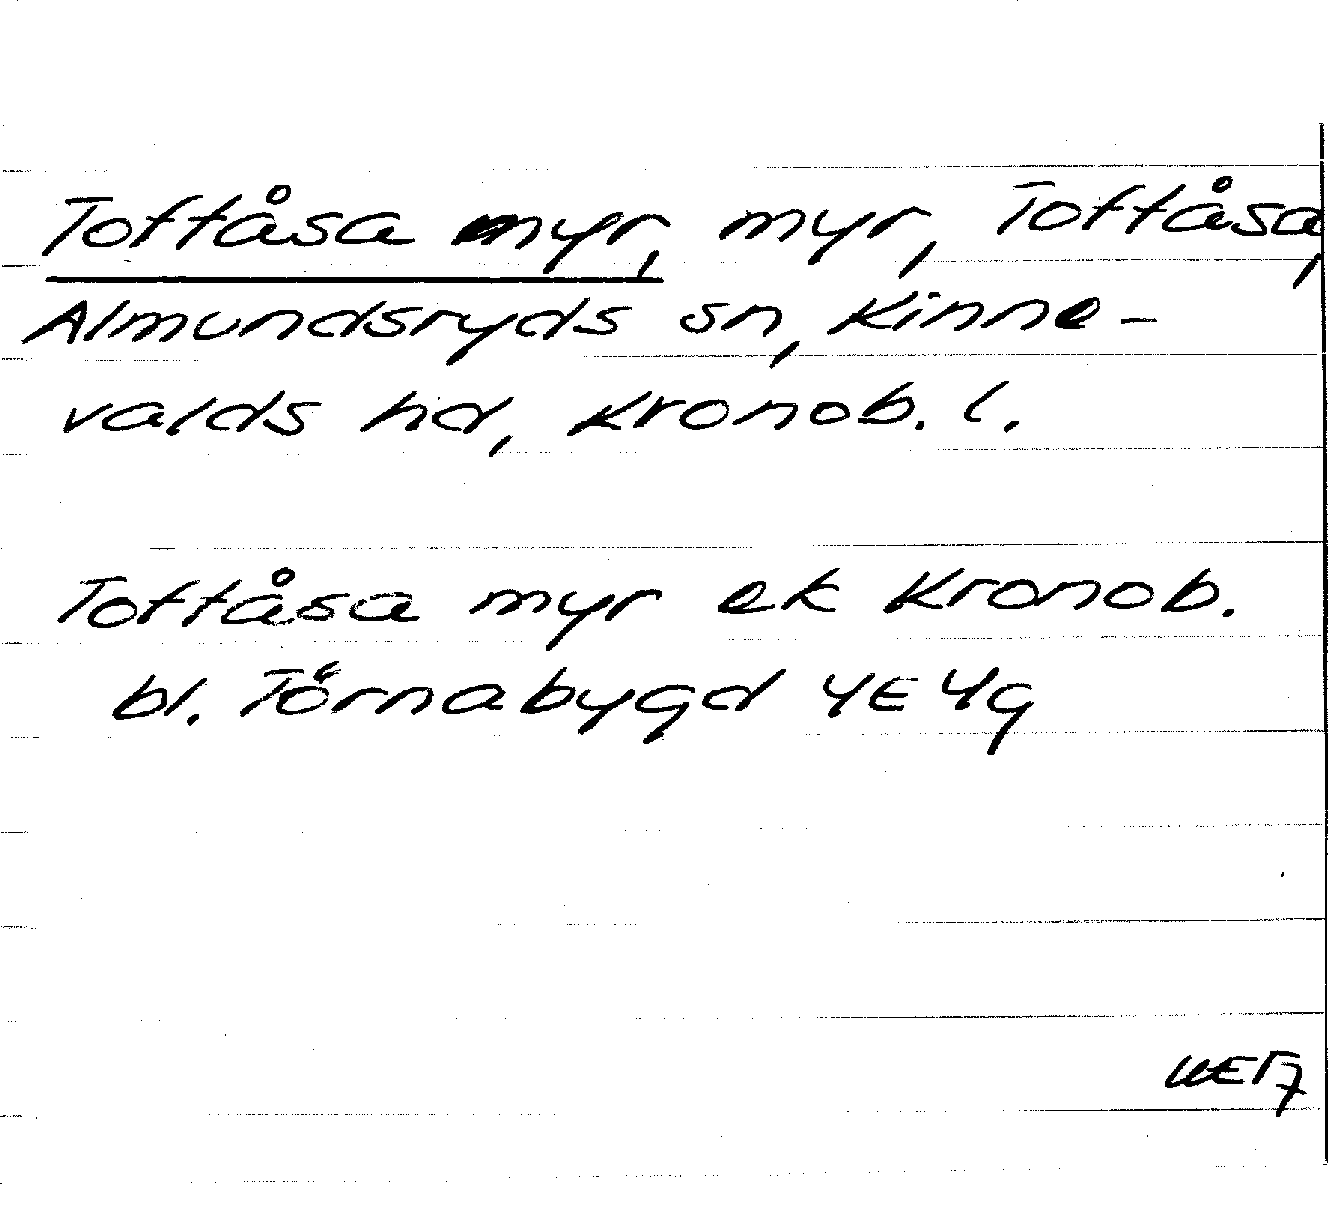 Toftåsa myr, myr, Toftåsa,
Almundsryds sn, Kinne-
valds hd, Kronob. l.
Toftåsa myr ek Kronob.
bl. Törnabygd 4E 4g